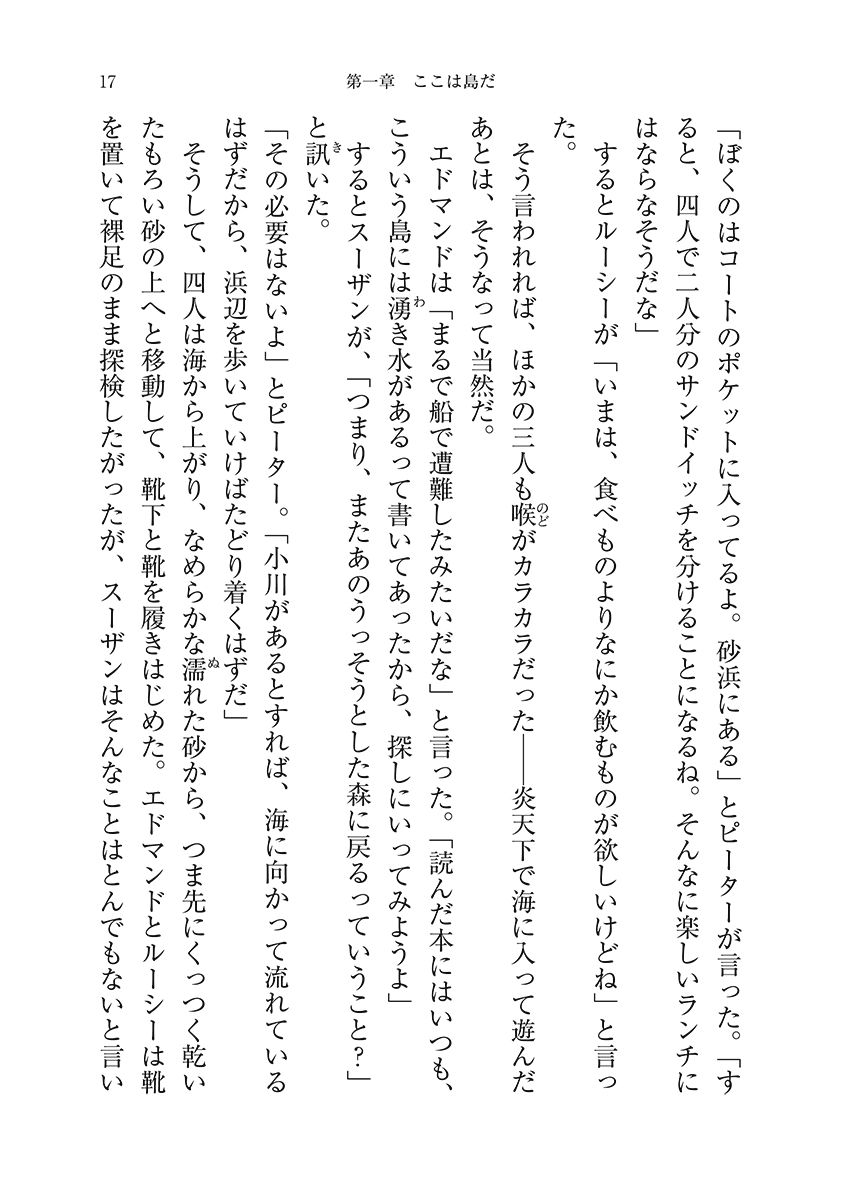 17
第一章　ここは島だ
「ぼくのはコートのポケットに入ってるよ。砂浜にある」とピーターが言った。「す
ると、四人で二人分のサンドイッチを分けることになるね。そんなに楽しいランチに
はならなそうだな」
　するとルーシーが「いまは、食べものよりなにか飲むものが欲しいけどね」と言っ
た。
　そう言われれば、ほかの三人も喉がカラカラだった――炎天下で海に入って遊んだ
あとは、そうなって当然だ。
　エドマンドは「まるで船で遭難したみたいだな」と言った。「読んだ本にはいつも、
こういう島には湧き水があるって書いてあったから、探しにいってみようよ」
　するとスーザンが、「つまり、またあのうっそうとした森に戻るっていうこと？」
と訊いた。
「その必要はないよ」とピーター。「小川があるとすれば、海に向かって流れている
はずだから、浜辺を歩いていけばたどり着くはずだ」
　そうして、四人は海から上がり、なめらかな濡れた砂から、つま先にくっつく乾い
たもろい砂の上へと移動して、靴下と靴を履きはじめた。エドマンドとルーシーは靴
を置いて裸足のまま探検したがったが、スーザンはそんなことはとんでもないと言い